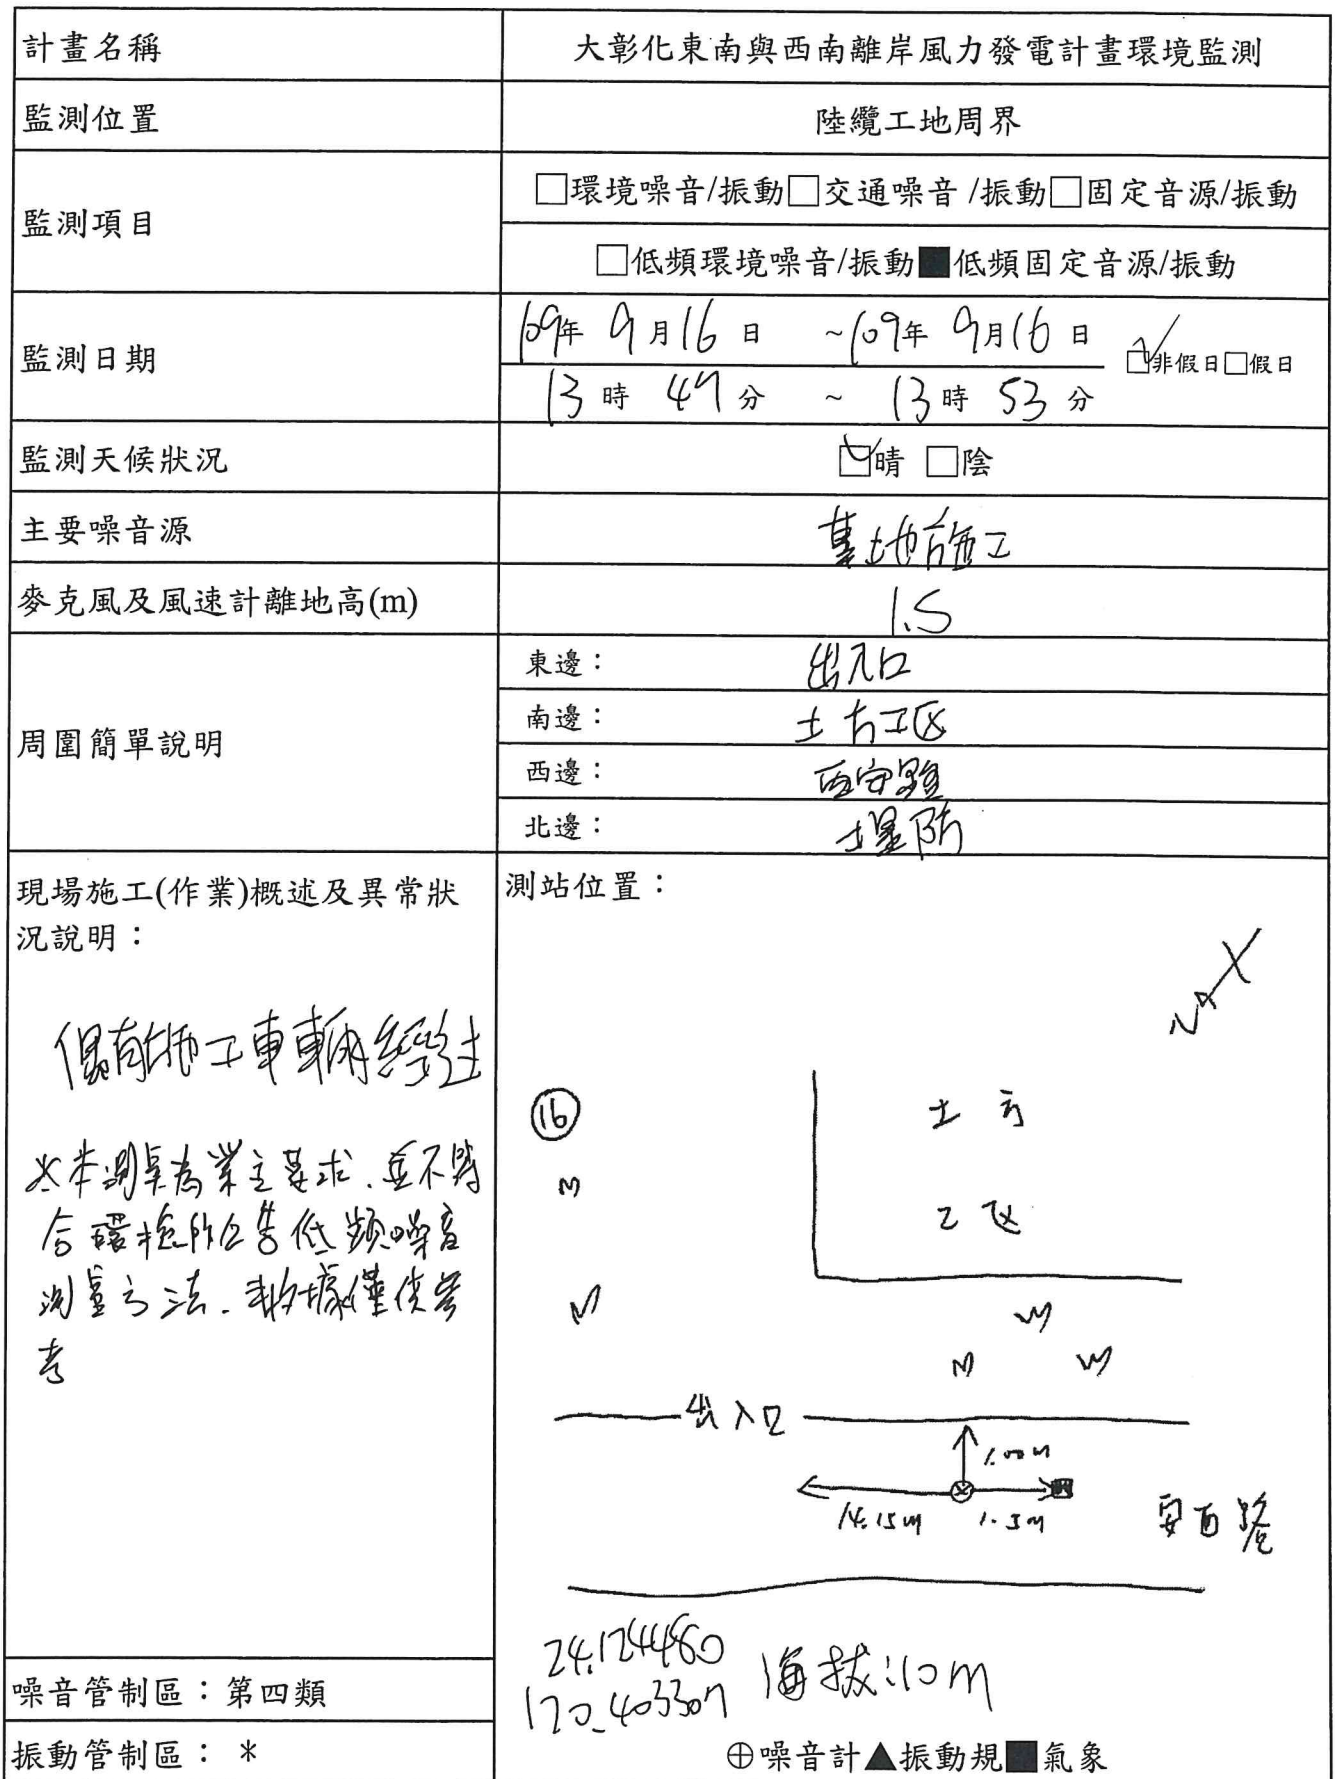 計畫名稱
大彰化東南與西南離岸風力發電計畫環境監測
監測位置
陸纜工地周界
監測項目
□環境噪音/振動□交通噪音/振動□固定音源/振動
□低頻環境噪音/振動■低頻固定音源/振動
監測日期
109年 9月16日 ~109年 9月16日
☑非假日□假日
13時 47分 ~ 13時 53分
監測天候狀況
☑晴 □陰
主要噪音源
基地施工
麥克風及風速計離地高(m)
1.5
周圍簡單說明
東邊：出入口
南邊：土方工区
西邊：
北邊：堤防
現場施工(作業)概述及異常狀
況說明：
偶有施工車輛經過
※本測點為業主要求.並不符
合環檢所公告低頻噪音
測量方法.數據僅供參
考
測站位置：
N
16
土方
工区
出入口
1.00m
14.15m
1.5m
安西路
24.124480
120.403307
海拔:10m
噪音管制區：第四類
振動管制區： *
⊕噪音計▲振動規■氣象